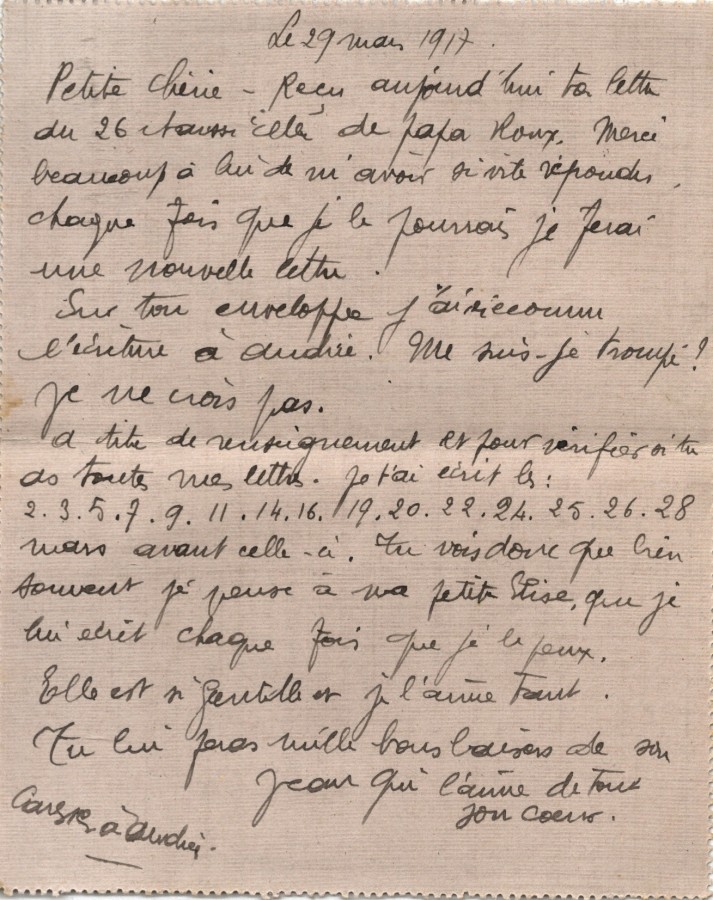 Le 29 mars 1917.
Petite chérie - Reçu aujourd'hui ta lettre
du 26 et aussi celle de papa Roux. Merci
beaucoup à lui de m'avoir si vite répondu,
chaque fois que je le pourrais je ferai
une nouvelle lettre.
Sur ton enveloppe j'ai reconnu
l'écriture à Andrée. Me suis-je trompé!
je ne crois pas.
a titre de renseignement et pour vérifier si tu
as toutes mes lettres. je t'ai écrit les:
2.3.5.7.9.11.14.16.19.20.22.24.25.26.28
mars avant celle-ci. Tu vois donc que bien
souvent je pense à ma petite Elise, que je
lui écrit chaque fois que je le peux.
Elle est si gentille et je l'aime tant.
Tu lui feras mille bons baisers de son
Jean qui l'aime de tout
son coeur.
Caresses à Andrée.